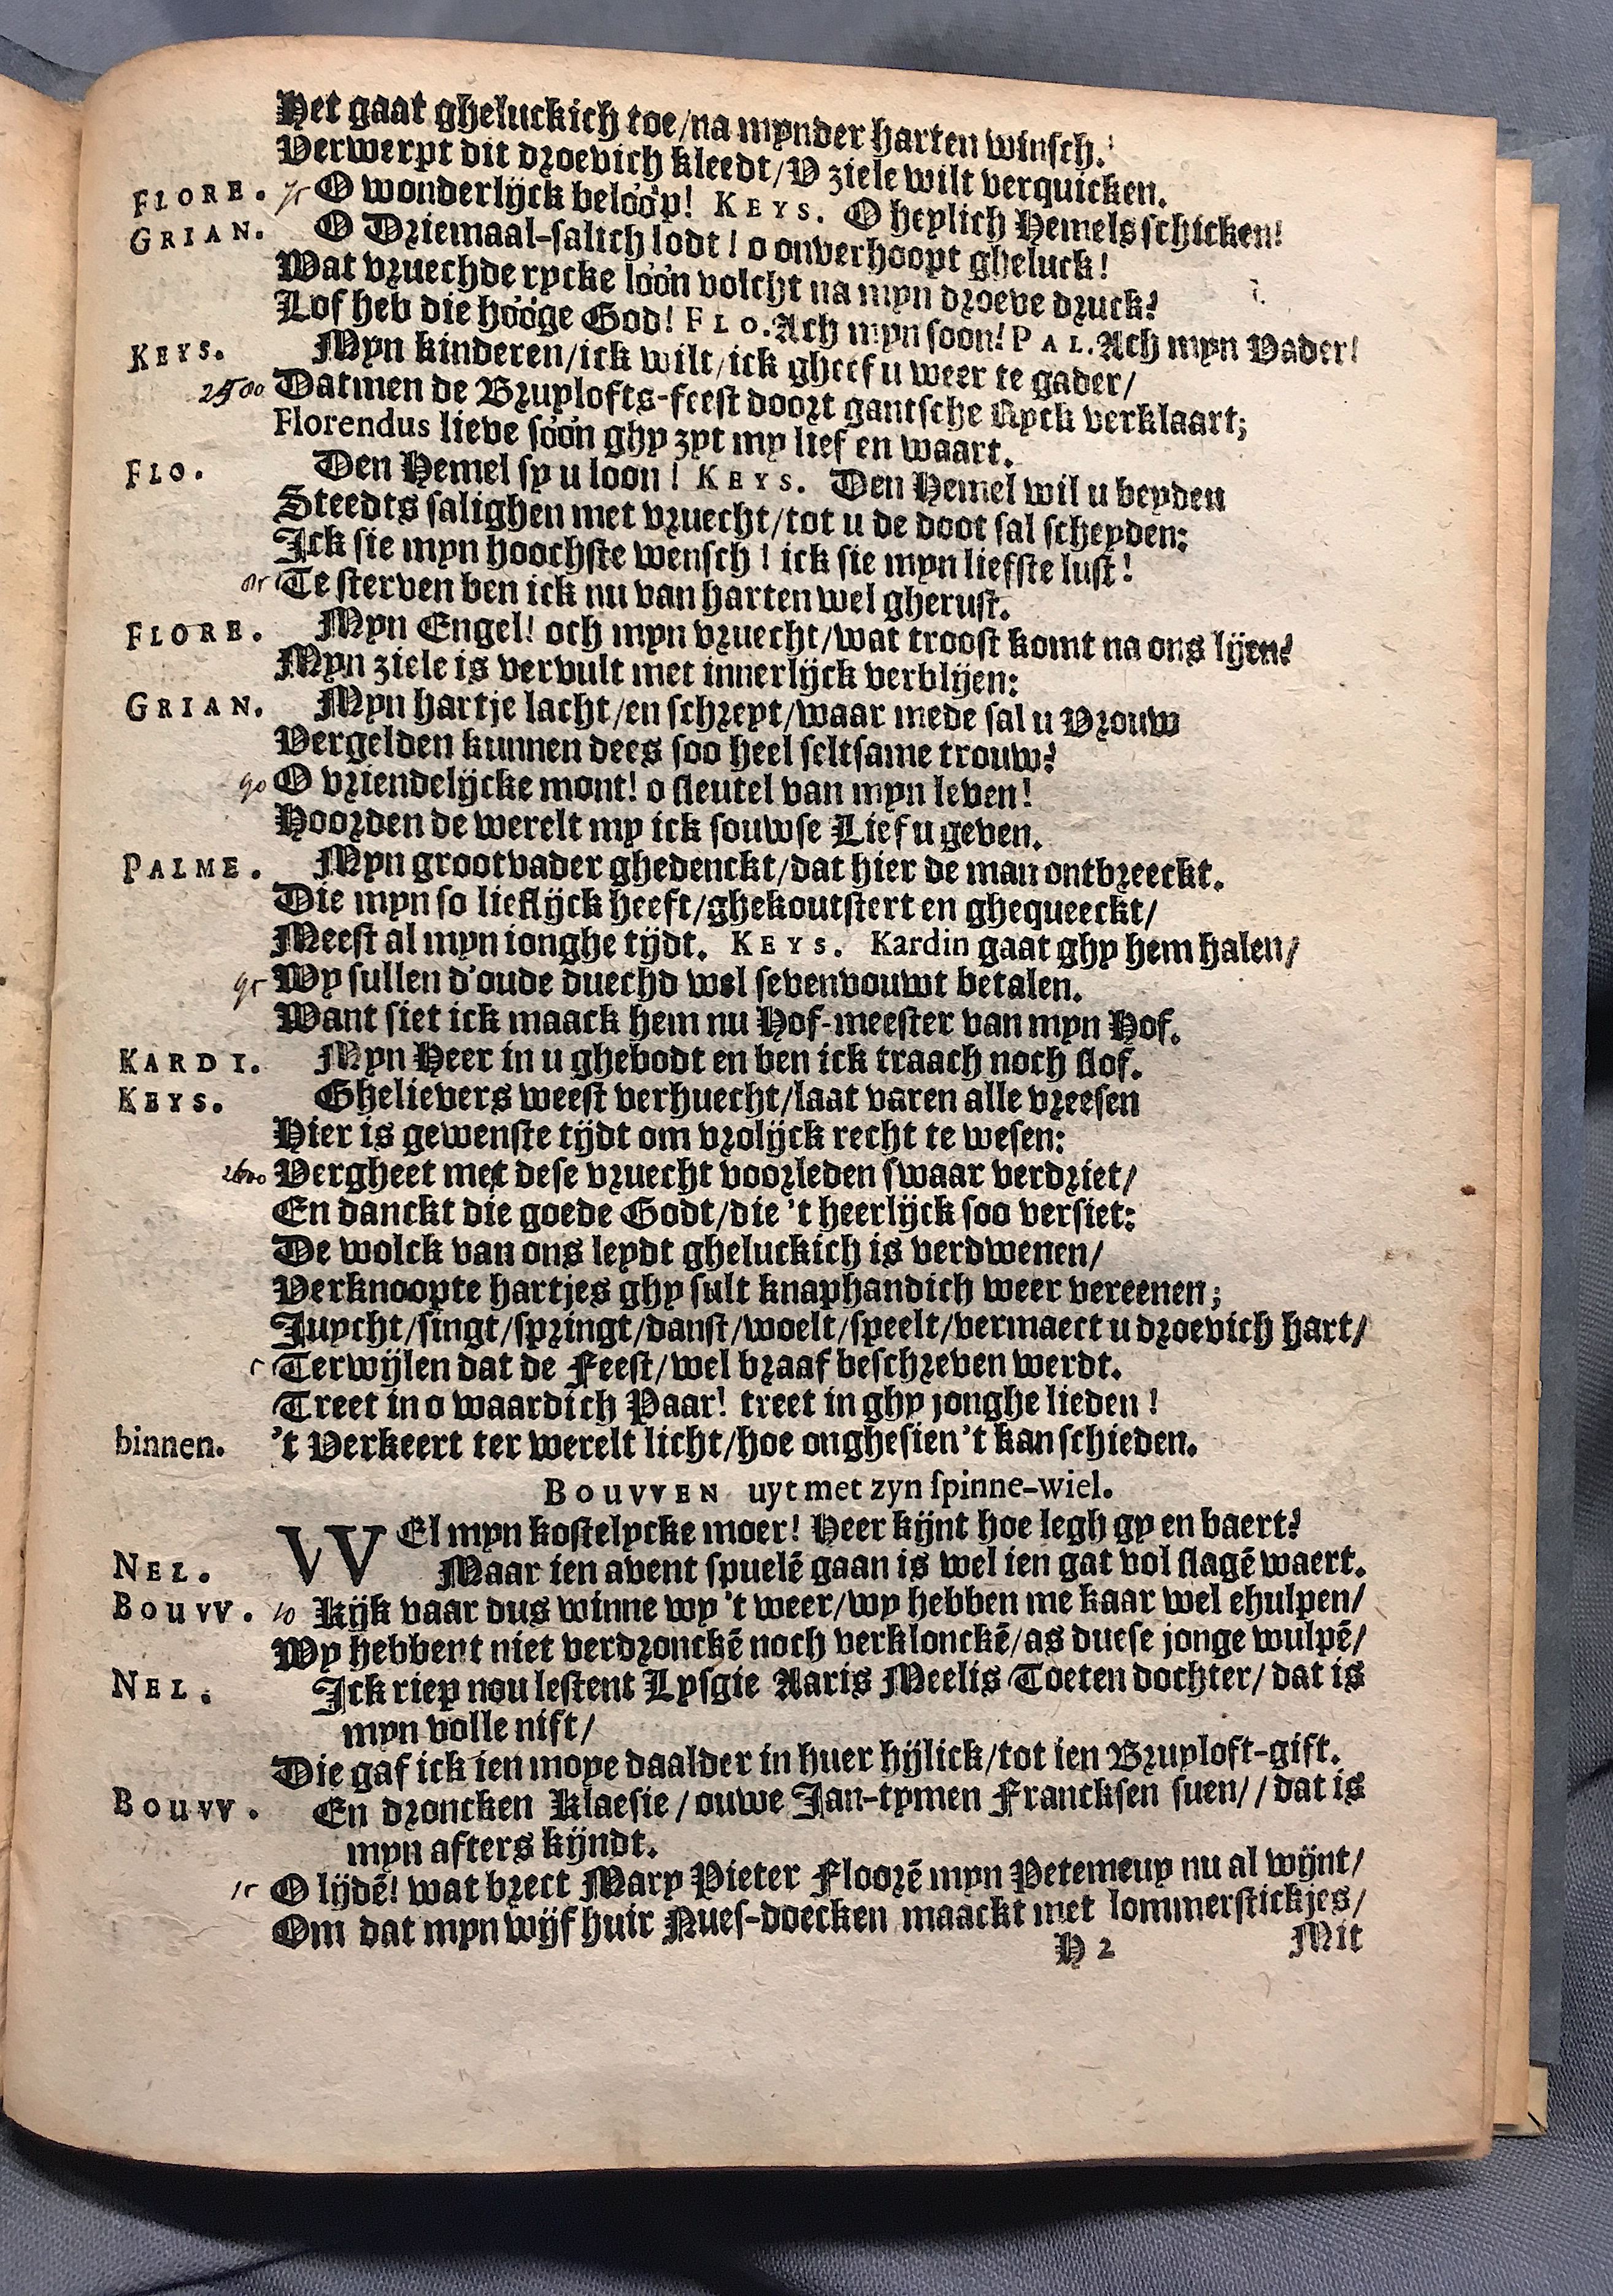 Het gaat gheluckich toe/na mynder harten winsch.
Verwerpt dit droevich kleedt/V ziele wilt verquicken.
FLORE. 75 O wonderlijck belóóp! KEYS. O heylich Hemels schicken!
GRIAN. O Driemaal-salich lodt! o onverhoopt gheluck!
Wat vruechde rycke lóón volcht na myn droeve druck?
Lof heb die hóóge God! FLO. Ach myn soon! PAL. Ach myn Vader!
KEYS. Myn kinderen/ick wilt/ick gheef u weer te gader/
2580 Datmen de Bruylofts-feest doort gantsche Ryck verklaart;
Florendus lieve sóón ghy zyt my lief en waart.
FLO. Den Hemel sy u loon! KEYS. Den Hemel wil u beyden
Steedts salighen met vruecht/tot u de doot sal scheyden:
Ick sie myn hoochste wensch! ick sie myn liefste lust!
85 Te sterven ben ick nu van harten wel gherust.
FLORE. Myn Engel! och myn vruecht/wat troost komt na ons lijen?
Myn ziele is vervult met innerlijck verblijen:
GRIAN. Myn hartje lacht/en schreyt/waar mede sal u Vrouw
Vergelden kunnen dees soo heel seltsame trouw?
90 O vriendelijcke mont! o sleutel van myn leven!
Hoorden de werelt my ick souwse Lief u geven.
PALME. Myn grootvader ghedenckt/dat hier de man ontbreeckt.
Die myn so lieflijck heeft/ghekoutstert en ghequeeckt/
Meest al myn ionghe tijdt. KEYS. Kardin gaat ghy hem halen/
95 Wy sullen d'oude duechd wel sevenvouwt betalen.
Want siet ick maack hem nu Hof-meester van myn Hof.
KARDI. Myn Heer in u ghebodt en ben ick traach noch slof.
KEYS. Ghelievers weest verhuecht/laat varen alle vreesen
Hier is gewenste tijdt om vrolijck recht te wesen:
2600 Vergheet met dese vruecht voorleden swaar verdriet/
En danckt die goede Godt/die 't heerlijck soo versiet:
De wolck van ons leydt gheluckich is verdwenen/
Verknoopte hartjes ghy sult knaphandich weer vereenen;
Juycht/singt/springt/danst/woelt/speelt/vermaect u droevich hart/
5 Terwijlen dat de Feest/wel braaf beschreven werdt.
Treet in o waardich Paar! treet in ghy jonghe lieden!
binnen. 't Verkeert ter werelt licht/hoe onghesien't kan schieden.
BOUVVEN uyt met zyn spinne-wiel.
WEl myn kostelycke moer! Heer kijnt hoe legh gy en baert?
NEL. Maar ien avent spuelē gaan is wel ien gat vol slagē waert.
BOUVV. 10 Kijk vaar dus winne wy 't weer/wy hebben me kaar wel ehulpen/
Wy hebbent niet verdronckē noch verklonckē/as duese jonge wulpē/
NEL. Ick riep nou lestent Lysgie Aaris Meelis Toeten dochter/ dat is
myn volle nift/
Die gaf ick ien moye daalder in huer hijlick/tot ien Bruyloft-gift.
BOUVV. En droncken Klaesie/ouwe Jan-tymen Francksen suen// dat is
myn afters kijndt.
15 O lijdē! wat brect Mary Pieter Floorē myn Petemeuy nu al wijnt/
Om dat myn wijf huir Nues-doecken maackt met lommerstickjes/
H 2 Mit